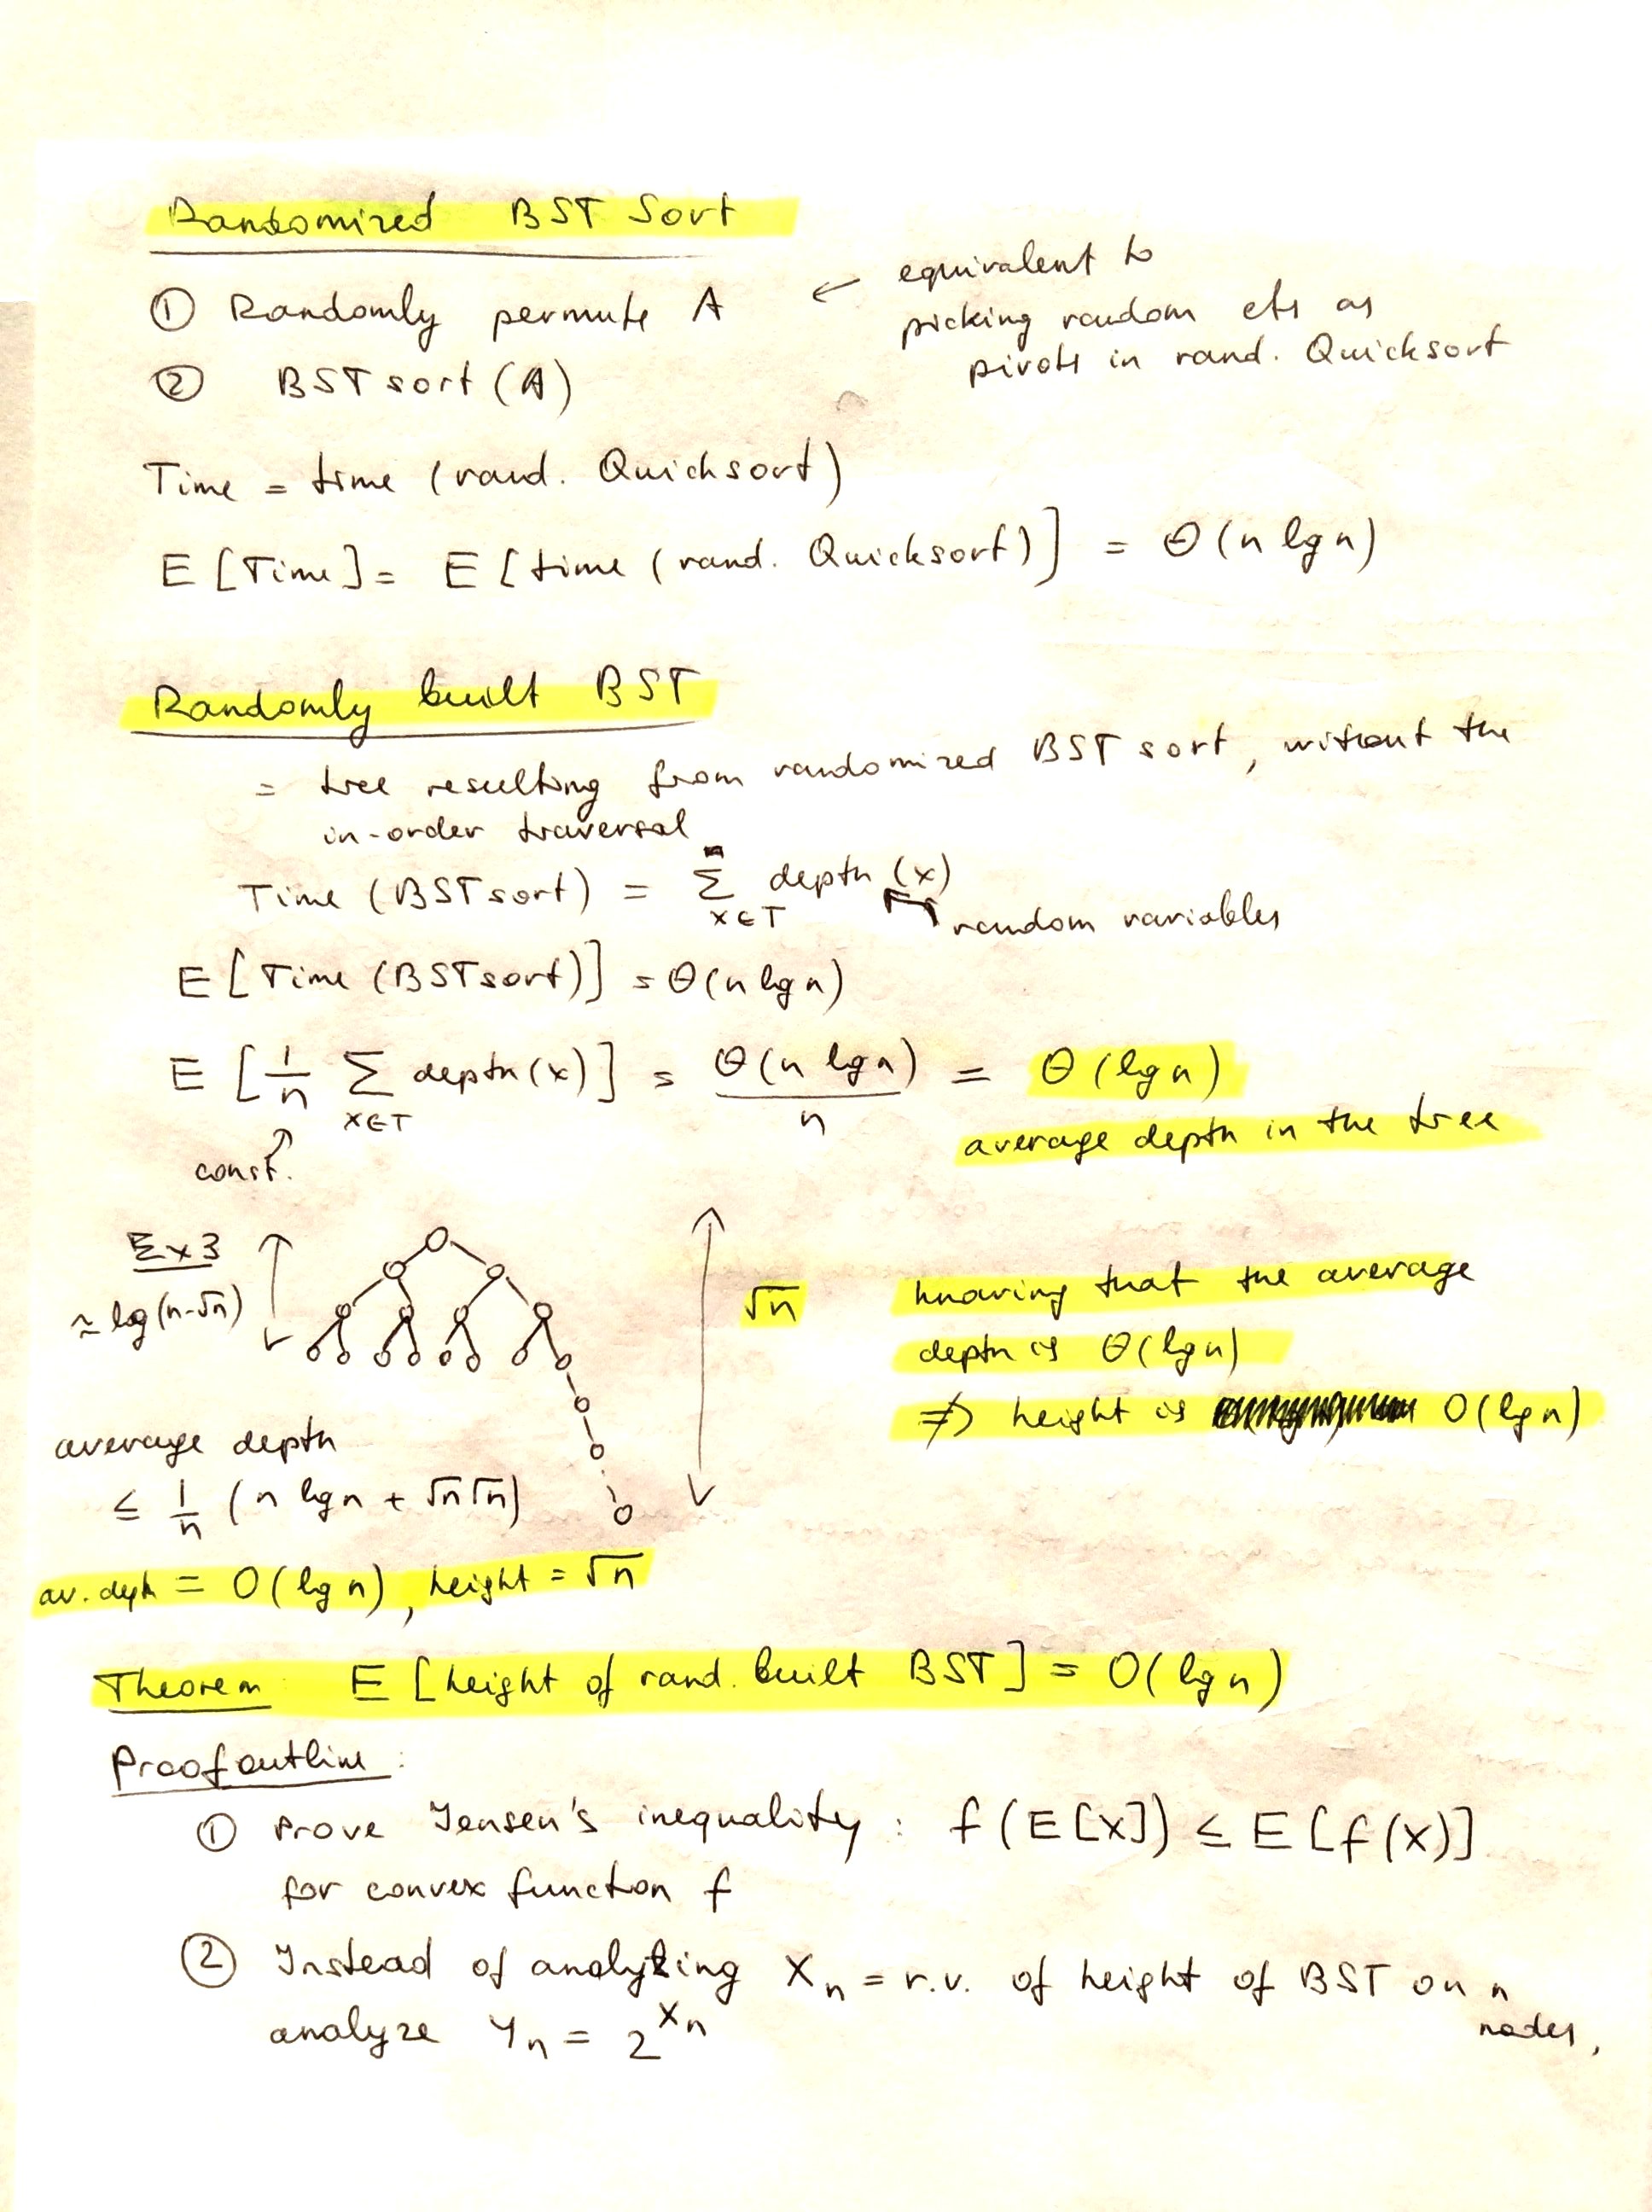 Randomized BST Sort
① Randomly permute A ← equivalent to
picking random elts as
pivots in rand. Quicksort
② BST sort (A)
Time = time (rand. Quicksort)
E [Time] = E [time (rand. Quicksort)] = Θ(n lg n)
Randomly built BST
= tree resulting from randomized BST sort, without the
in-order traversal
Time (BST sort) = Σ depth (x)
x∈T
random variables
E [Time (BST sort)] = Θ(n lg n)
E [1/n Σ depth(x)] = Θ(n lg n)/n = Θ(lg n)
x∈T
const.
average depth in the tree
Ex 3
≈ log(n-√n)
√n
knowing that the average
depth is Θ(lg n)
⇏ height is O(lg n)
average depth
≤ 1/n (n lg n + √n√n)
av. dpth = O(lg n), height = √n
Theorem E [height of rand. built BST] = O(lg n)
Proof outline:
① Prove Jensen's inequality: f(E[X]) ≤ E[f(X)]
for convex function f
② Instead of analyzing Xn = r.v. of height of BST on n
nodes,
analyze Yn = 2^Xn